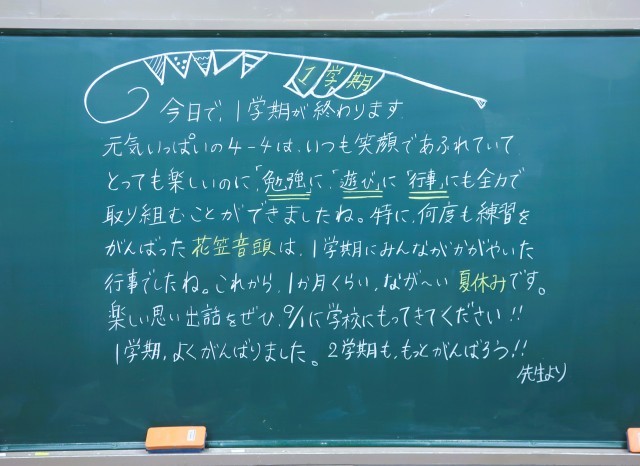 1学期
今日で、1学期が終わります。
元気いっぱいの4-4は、いつも笑顔であふれていて
とっても楽しいのに、「勉強」に、「遊び」に「行事」にも全力で
取り組むことができましたね。特に、何度も練習を
がんばった花笠音頭は、1学期にみんながかがやいた
行事でしたね。これから、1か月くらい、なが〜い夏休みです。
楽しい思い出話をぜひ、9/1に学校にもってきてください!!
1学期、よくがんばりました。2学期も、もっとがんばろう!!
先生より